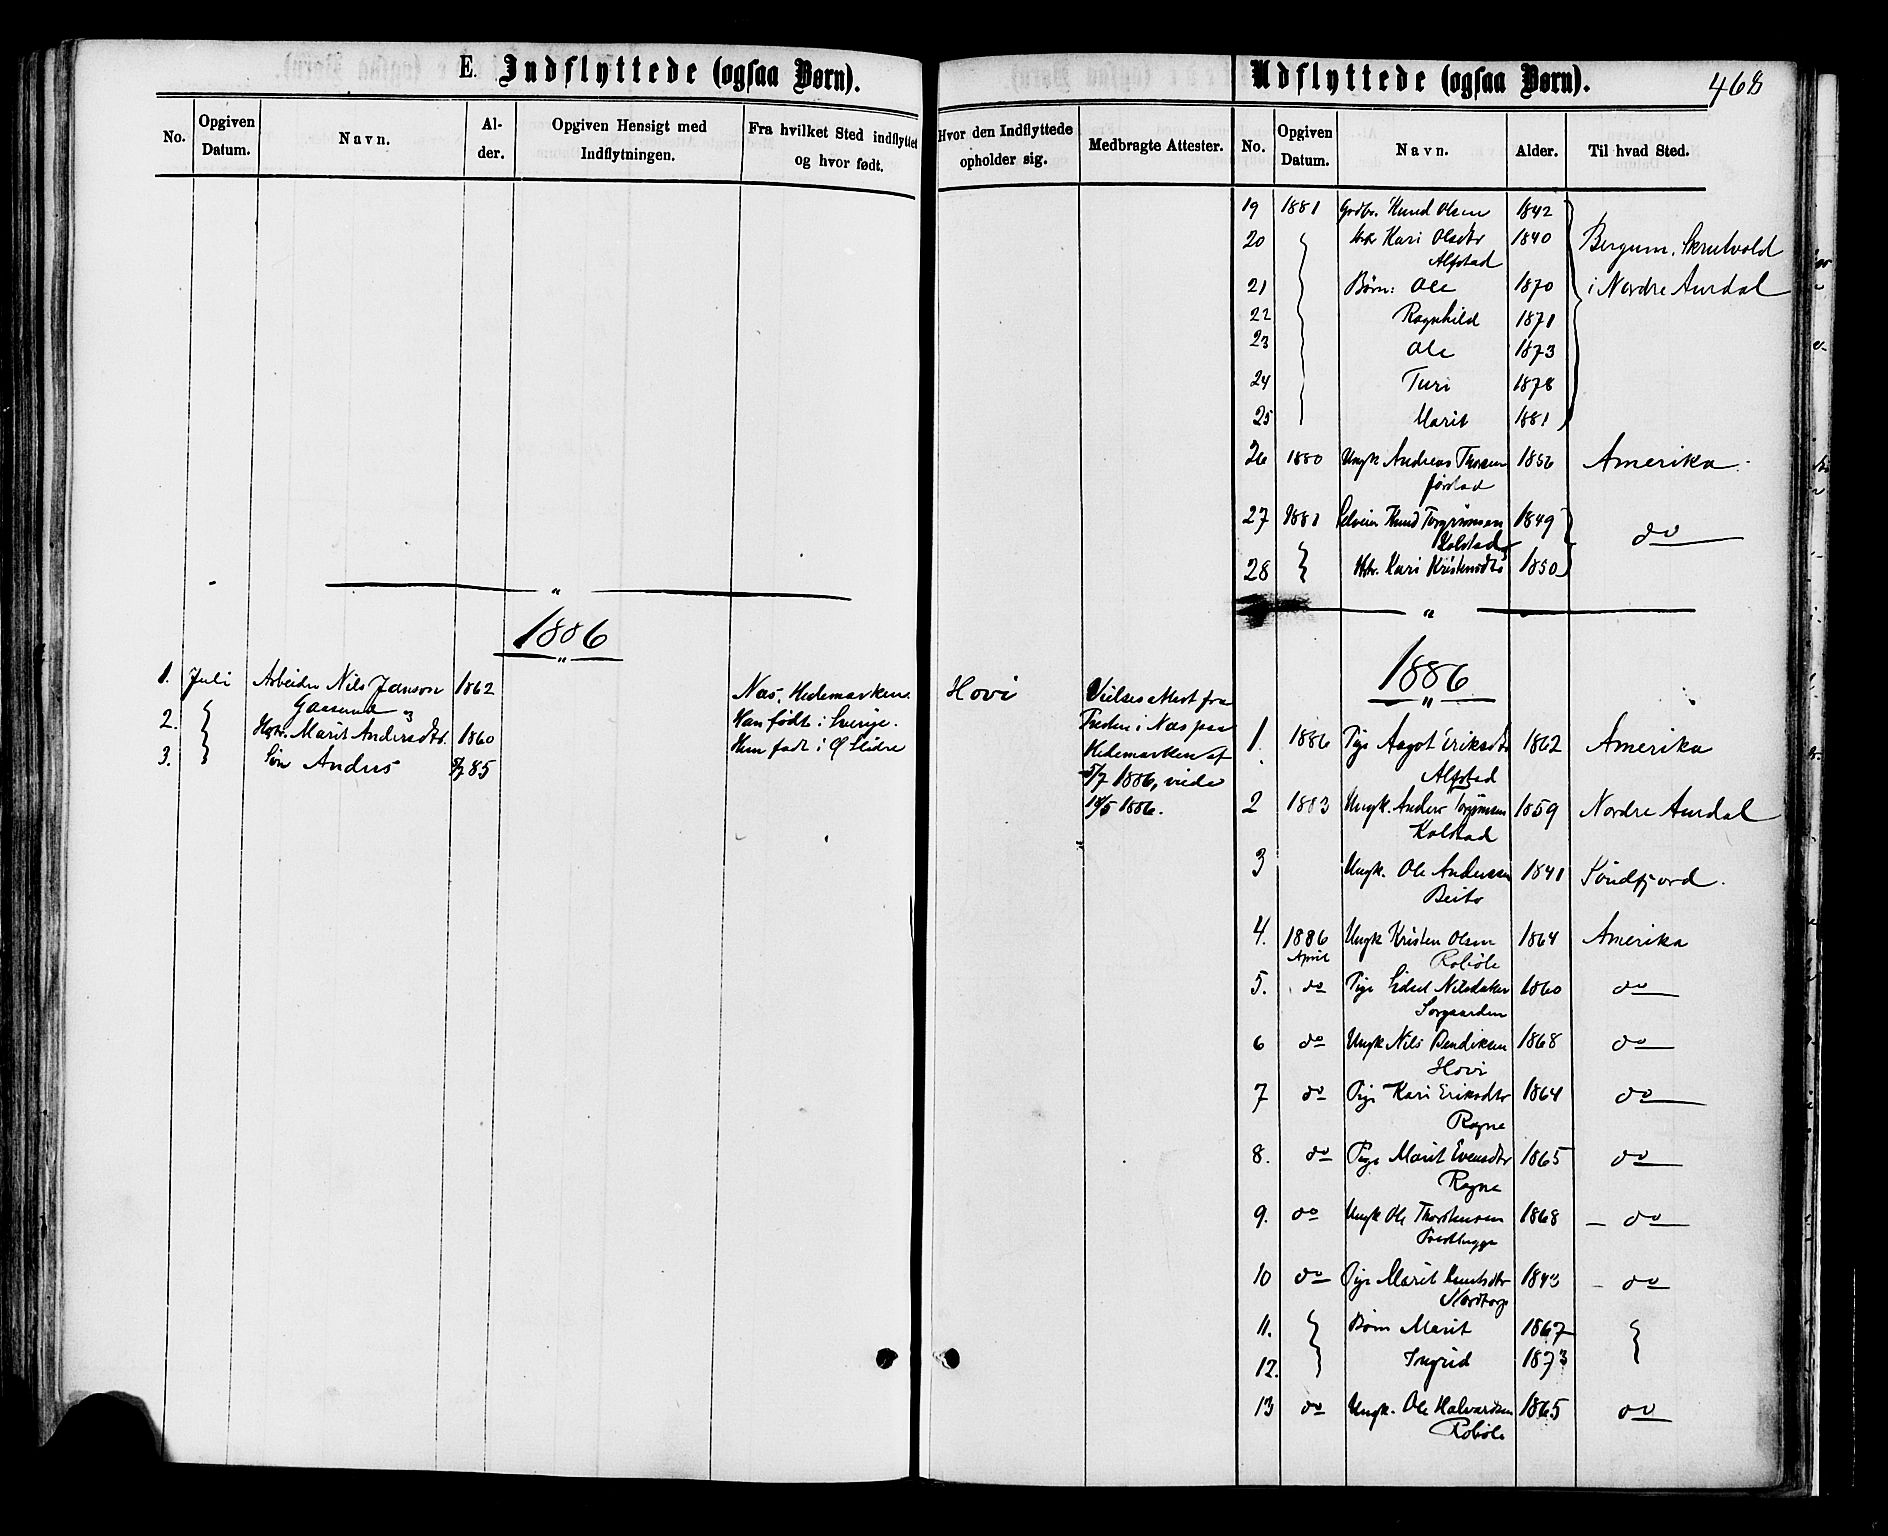 E. Indflyttede (ogsaa Børn).
No.
Opgiven
Datum.
Navn.
Al-
der.
Opgiven Hensigt med
Indflytningen.
Fra hvilket Sted indflyttet
og hvor født.
Hvor den Indflyttede
opholder sig.
Medbragte Attester.
1886
1. Juli Arbeider Nils Janson 1862
og
2. Hstr. Marit Andersdtr. 1860
3. Søn Andris 85
Næs, Hedemarken.
Han født i Sverige.
Hun født i Ø Slidre
Hovi
Vielsesattest fra
Præsten i Næs paa
Hedemarken af
5/7 1886, viede
1886.
Udflyttede (ogsaa Børn).
468
No.
Opgiven
Datum.
Navn.
Alder.
Til hvad Sted.
19 1881 Grdbr. Knud Olsen 1842
20 Hstr Kari Olsdtr 1840 Bergum, Skrutvold
Alfstad
21 Børn: Ole 1870 i Nordre Aurdal
22 Ragnhild 1871
23 Ole 1873
24 Turi 1878
25 Marit 1881
26 1880 Ungk Andreas Thorsen 1856 Amerika
27 1881 Selveier Knud Torgrimsen 1849 do
Kolstad
28 Hstr. Kari Kristensdtr 1850
"
1886
"
1. 1886 Pige Aagot Eriksdtr 1862 Amerika
Alfstad
2 1883 Ungk. Anders Torgrimsen 1859 Nordre Aurdal
Kolstad
3 Ungk. Ole Andersen 1841 Søndfjord.
Beito
4. 1886 Ungk Kristen Olsen 1864 Amerika
April Robøle
5. do Pige Sidsel Nilsdatter 1860 do
Sørgaarden
6 do Ungk Nils Bendiksen 1868 do
Hovi
7 do Pige Kari Eriksdtr 1864 do
Rogne
8. do Pige Marit Evensdtr 1865 do
Rogne
9. do Ungk Ole Thorstensen 1868 do
10 do Pige Marit Knutsdtr 1843 do
Nordtorp
11. Børn Marit 1867
12. Ingrid 1873
13 do Ungk. Ole Halvardsen 1865 do
Robøle